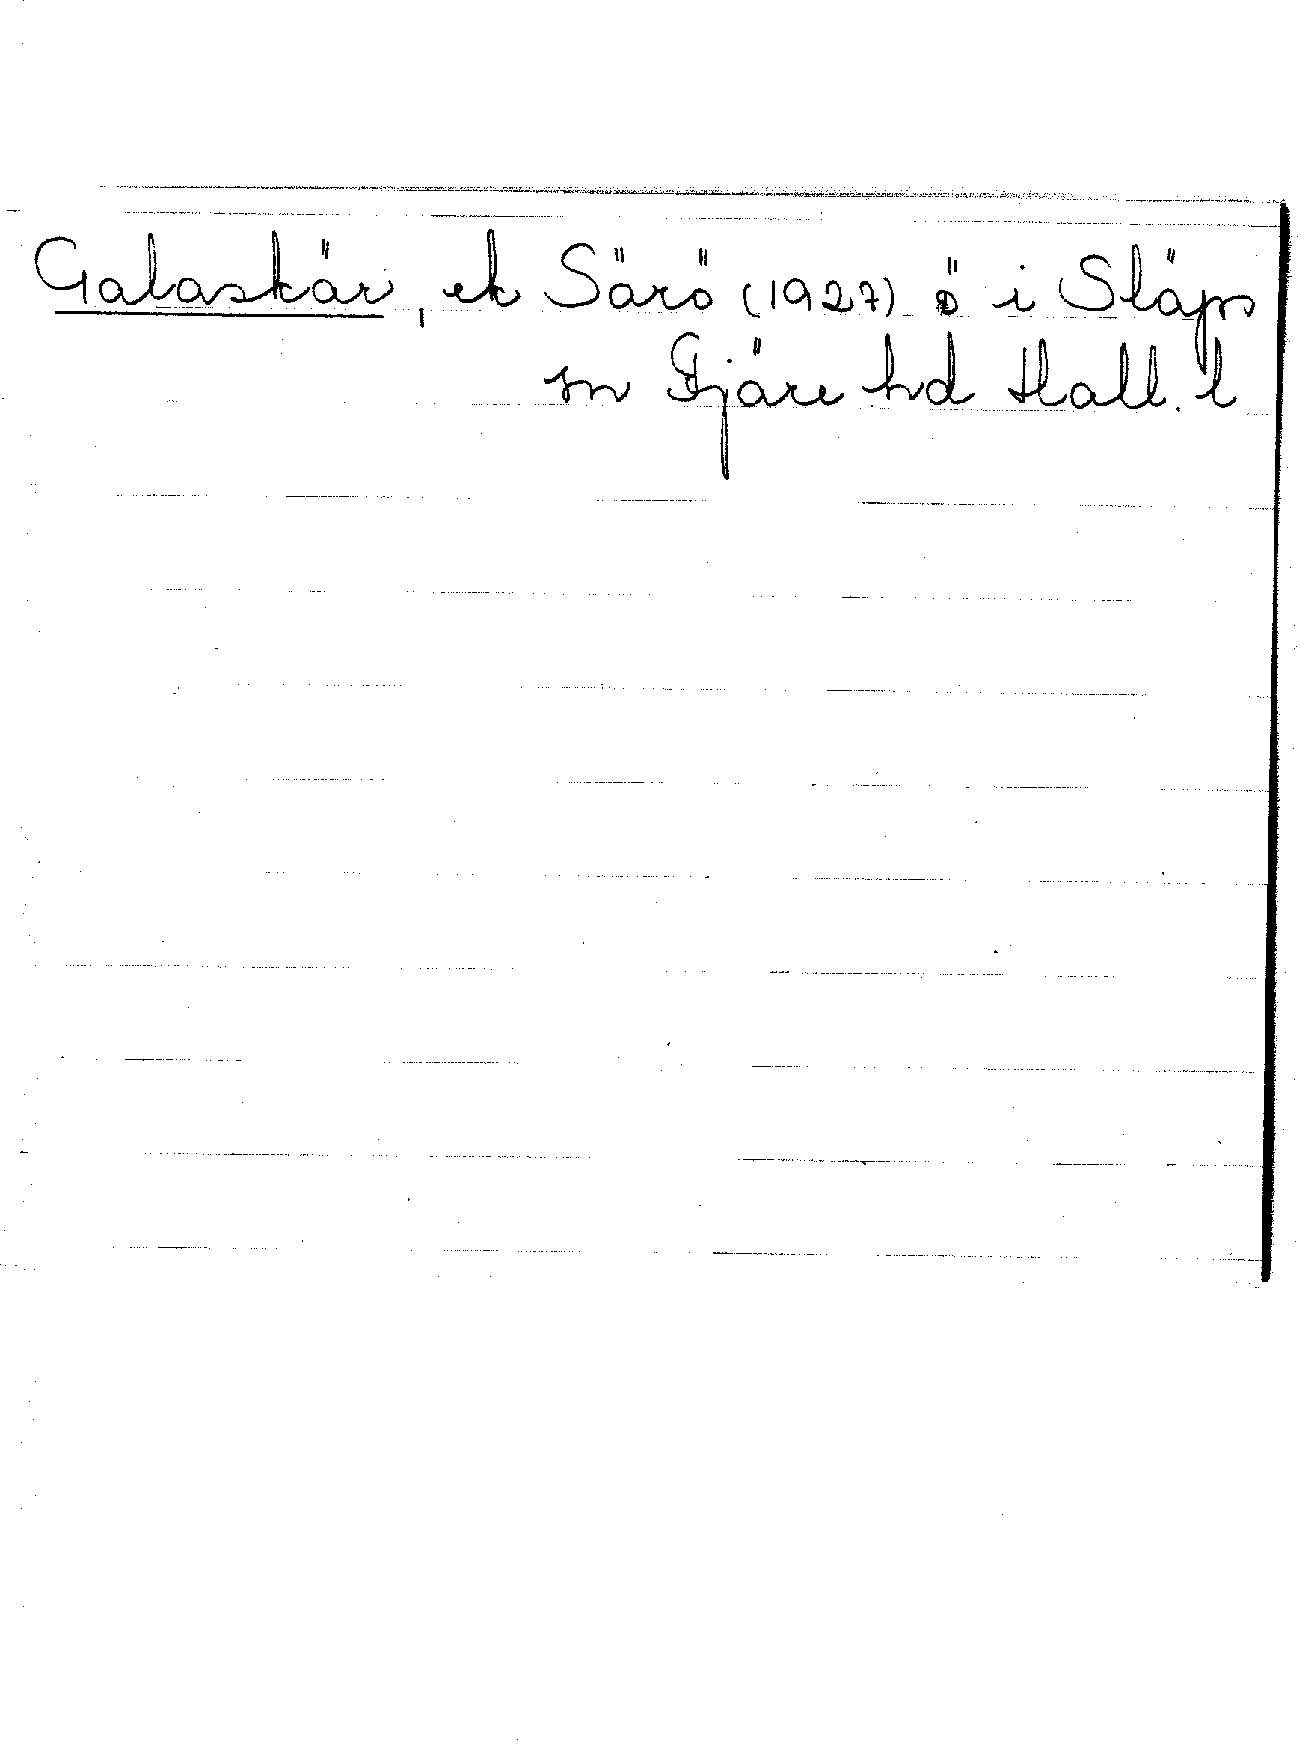 Galaskär, ek Särö (1927) ö i Släps
sn Fjäre hd Hall. l